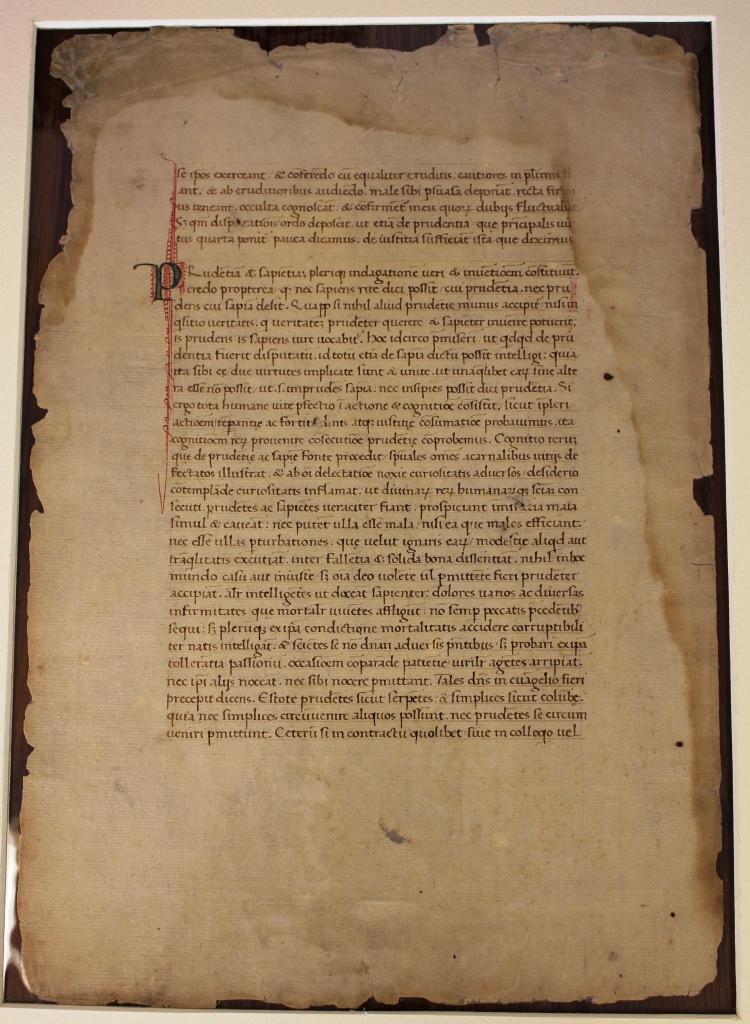 se ipos exerceant. & coferedo cu equaliter eruditis. cautiores in plimis
ant. & ab eruditioribus audiedo. male sibi psuasa deponat. recta
us teneant. occulta cognoscat. & cofirmet in eis quoꝝ dubijs fluctuabat
Sꝫ qm disputatiois ordo deposcit. ut etia de prudentia. que pricipalis
tus quarta ponit pauca dicamus. de iustitia sufficiat ista que diximus
PRudetia & sapietiaꝫ pleriqꝫ indagatione ueri & inuetioem costituut.
credo propterea. q nec sapiens rite dici possit. cui prudetia. nec pru
dens cui sapia desit. Quapp si nihil aliud prudetie munus accipit nisi in
qsitio ueritatis. q ueritateꝫ prudeter querere & sapieter inueire potuerit.
is prudens is sapiens iure uocabit. Hoc idcirco pmiseri. ut qdqd de pru
dentia fuerit disputatu. id totu etia de sapia dictu possit intelligi: quia
ita sibi ee due uirtutes implicate sunt & unite. ut unaquibet eaꝝ sine alte
ra esse no possit. ut. s. imprudes sapia. nec insipies possit dici prudetia. Si
ergo tota humane uite pfectio i actione & cognitioe cosistit. sicut ipleri
actioem tepantie ac fortit atqꝫ iustitie cosumatioe probauimus. ita
cognitioem reꝝ prouenire cosecutioe prudetie coprobemus. Cognitio reruꝫ
que de prudetie ac sapie fonte procedit. spuales omes a carnalibus uitijs de
fectatos illustrat. & ab oi delectatioe noxie curiositatis aduersos. desiderio
cotemplade curiositatis inflamat. ut diuinaꝝ reꝝ humanaꝝqꝫ scia con
secuti. prudetes ac sapietes ueraciter fiant. prospiciant mala
simul & caueat. nec putet ulla esse mala. nisi ea que malos efficiant.
nec esse ullas pturbationes. que uelut ignaris eaꝝ modestie aliqd aut
traqlitatis excutiat. inter falletia & solida bona dissentiat. nihil in hoc
mundo casu aut iniuste sꝫ oia deo uolete ul pmittete fieri prudeter
accipiat. alr intelligetes ut doceat sapienter: dolores uarios ac diuersas
infirmitates que mortalr uiuetes affligut. no semp peccatis pcedetibꝫ
sequi: sꝫ pleruqꝫ ex ipa condictione mortalitatis accidere corruptibili
ter natis intelligat. & scietes se no dnari aduersis pntibus. sꝫ probari ex ipa
tolleratia passioniu. occasioem coparade patietie uirilr agetes arripiat.
nec ipi alijs noceat. nec sibi nocere pmittant. Tales dns in euagelio fieri
precepit dicens. Estote prudetes sicut serpetes. & simplices sicut colube.
quia nec simplices circuuenire aliquos possunt. nec prudetes se circum
ueniri pmittunt. Ceteru si in contractu quolibet siue in colloqo uel